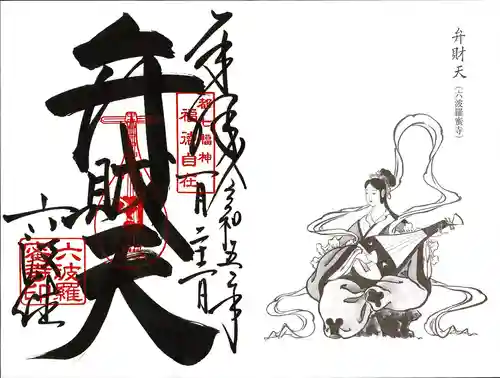 奉拝
令和五年
一月二十一日
都七福神
福徳自在
弁財天
六波羅
弁財天
(六波羅蜜寺)